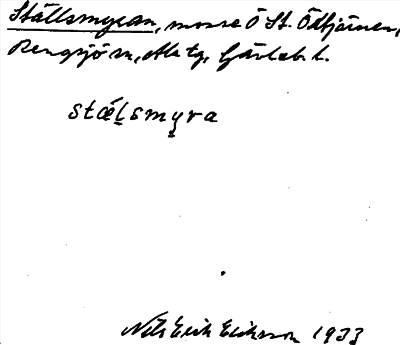 Ställsmyran, mosse Ö St. Öltjärnen,
Rengsjö sn, Ala tg, Gävleb. l.
stǽlsmyra
Nils Erik Eriksson 1933